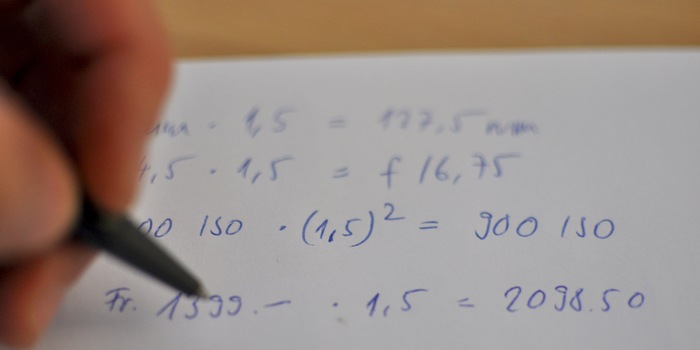 mm · 1,5 = 127,5 mm
4,5 · 1,5 = f/6,75
00 ISO · (1,5)² = 900 ISO
Fr. 1399.– · 1,5 = 2098.50